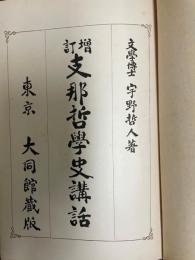 文學博士 宇野哲人著
增訂 支那哲學史講話
東京 大同館藏版